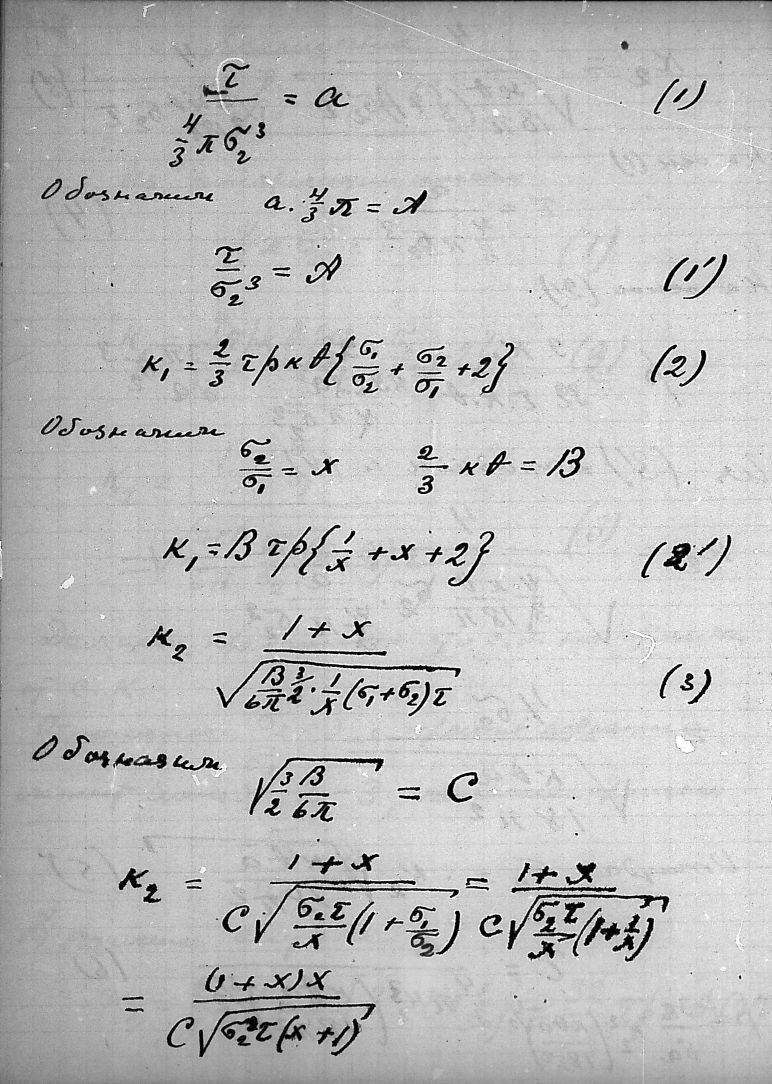 τ / (4/3 π σ₂³) = a (1)
Обозначим a · 4/3 π = A
τ / σ₂³ = A (1')
κ₁ = 2/3 τ p κ θ { σ₁/σ₂ + σ₂/σ₁ + 2 } (2)
Обозначим
σ₂/σ₁ = x 2/3 κ θ = B
κ₁ = B τ p { 1/x + x + 2 } (2')
κ₂ = (1 + x) / √( B/6π 3/2 · 1/x (σ₁ + σ₂) τ ) (3)
Обозначим √( 3/2 B/6π ) = C
κ₂ = (1 + x) / C√( σ₂ τ/x (1 + σ₁/σ₂) ) = (1 + x) / C√( σ₂ τ/x (1 + 1/x) )
= (1 + x) x / C√( σ₂ τ (x + 1) )